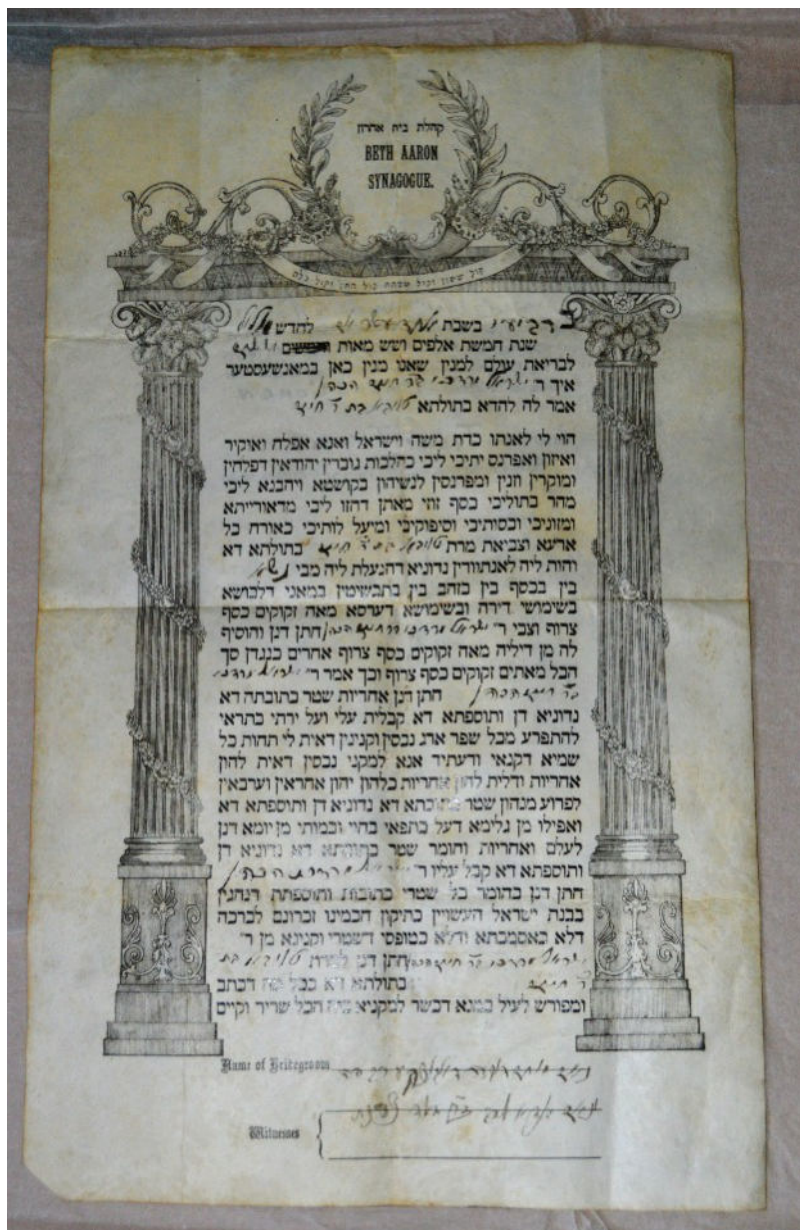 קהלת בית אהרון
BETH AARON
SYNAGOGUE.
קול ששון וקול שמחה קול חתן וקול כלה
בשבת לחדש
שנת חמשת אלפים ושש מאות
לבריאת עולם למנין שאנו מנין כאן במאנשעסטער
איך ר' ישראל מרדכי בר חיים הכהן
אמר לה להדא בתולתא טויבא בת ר' חיים
הוי לי לאנתו כדת משה וישראל ואנא אפלח ואוקיר
ואיזון ואפרנס יתיכי ליכי כהלכות גוברין יהודאין דפלחין
ומוקרין וזנין ומפרנסין לנשיהון בקושטא ויהבנא ליכי
מהר בתוליכי כסף זוזי מאתן דחזו ליכי מדאורייתא
ומזוניכי וכסותיכי וסיפוקיכי ומיעל לותיכי כאורח כל
ארעא וצביאת מרת טויבא בת ר' חיים בתולתא דא
והות ליה לאנתו ודין נדוניא דהנעלת ליה מבי
בין בכסף בין בזהב בין בתכשיטין במאני דלבושא
בשימושי דירה ובשימושא דערסא מאה זקוקים כסף
צרוף וצבי ר' ישראל מרדכי בר חיים הכהן חתן דנן והוסיף
לה מן דיליה מאה זקוקים כסף צרוף אחרים כנגדן סך
הכל מאתים זקוקים כסף צרוף וכך אמר ר' ישראל מרדכי
בר חיים הכהן חתן דנן אחריות שטר כתובתה דא
נדוניא דן ותוספתא דא קבלית עלי ועל ירתי בתראי
להתפרע מכל שפר ארג נכסין וקנינין דאית לי תחות כל
שמיא דקנאי ודעתיד אנא למקני נכסין דאית להון
אחריות ודלית להון אחריות כלהון יהון אחראין וערבאין
לפרוע מנהון שטר כתובתא דא נדוניא דן ותוספתא דא
ואפילו מן גלימא דעל כתפאי בחיי ובמותי מן יומא דנן
לעלם ואחריות וחומר שטר כתובתא דא נדוניא דן
ותוספתא דא קבל עליו ר' ישראל מרדכי הכהן
חתן דנן כחומר כל שטרי כתובות ותוספתת דנהגין
בבנת ישראל העשויין כתיקון חכמינו זכרונם לברכה
דלא כאסמכתא ודלא כטופסי דשטרי וקנינא מן ר'
ישראל מרדכי בר חיים הכהן חתן דנן למרת טויבא בת
ר' חיים בתולתא דא ככל מה דכתב
ומפורש לעיל במנא דכשר למקניא ביה הכל שריר וקיים
Name of Bridegroom
Witnesses